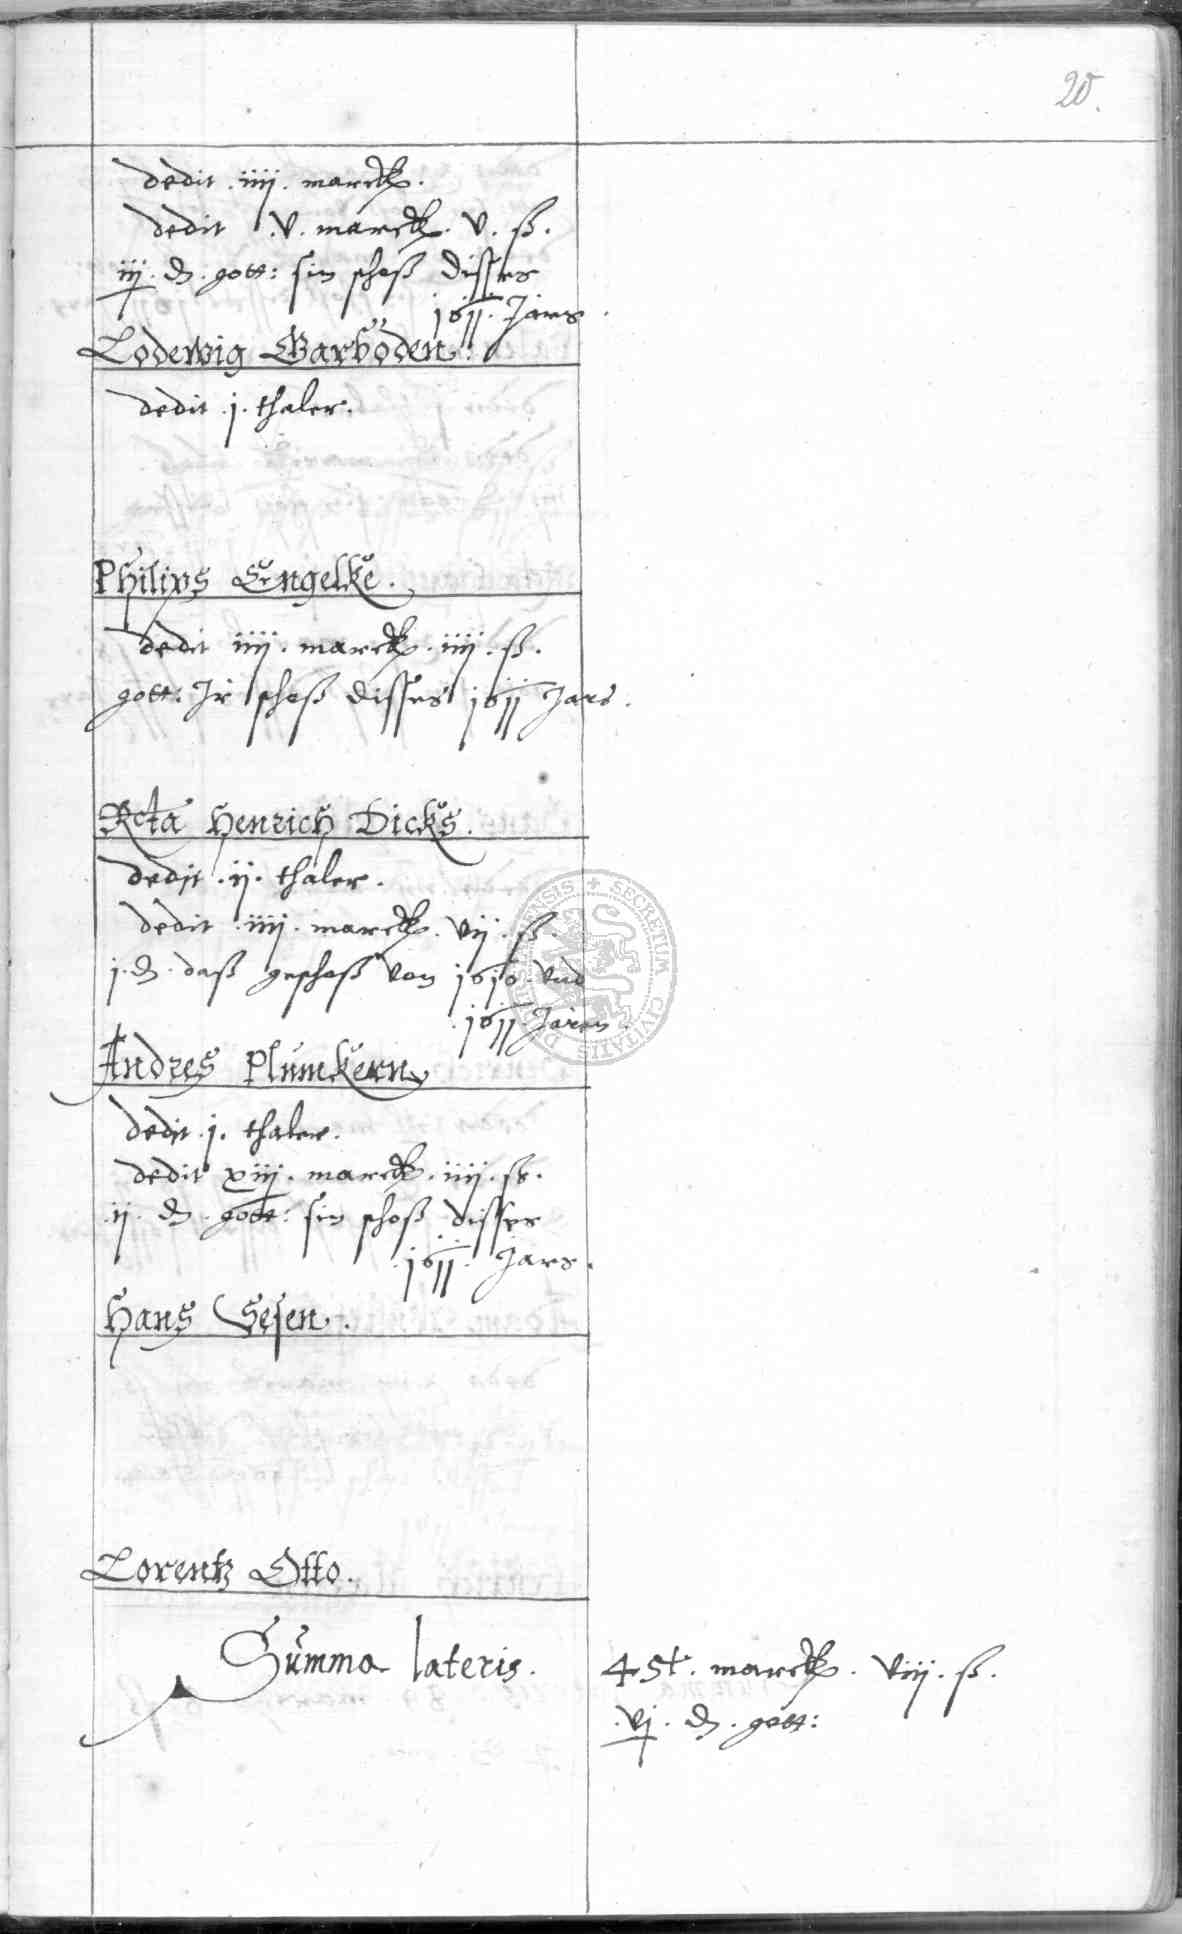 20.
dedit .iiij. marck.
dedit .v. marck. v. ß.
iij. ₰. gott: sin schoß disses
1611. Jars.
Lodewig Garböden.
dedit .j. thaler.
Philips Engelke.
dedit iiij. marck. iiij. ß.
gott: Jr schoß disses 1611 Jars.
Rcta Henrich Dicks.
dedit .ij. thaler.
dedit .iiij. marck. vij. ß.
j. ₰. daß geschoß von 1610. vnd
.1611. Jaren.
Andres Plumkern
dedit .j. thaler.
dedit xiij. marck. iiij. ß.
.ij. ₰. gott: sin schoß disses
.1611. Jars.
Hans Sesen.
Lorentz Otto.
Summa lateris. 45t. marck. viij. ß.
.vj. ₰. gott:
SECRETUM CIVITATIS